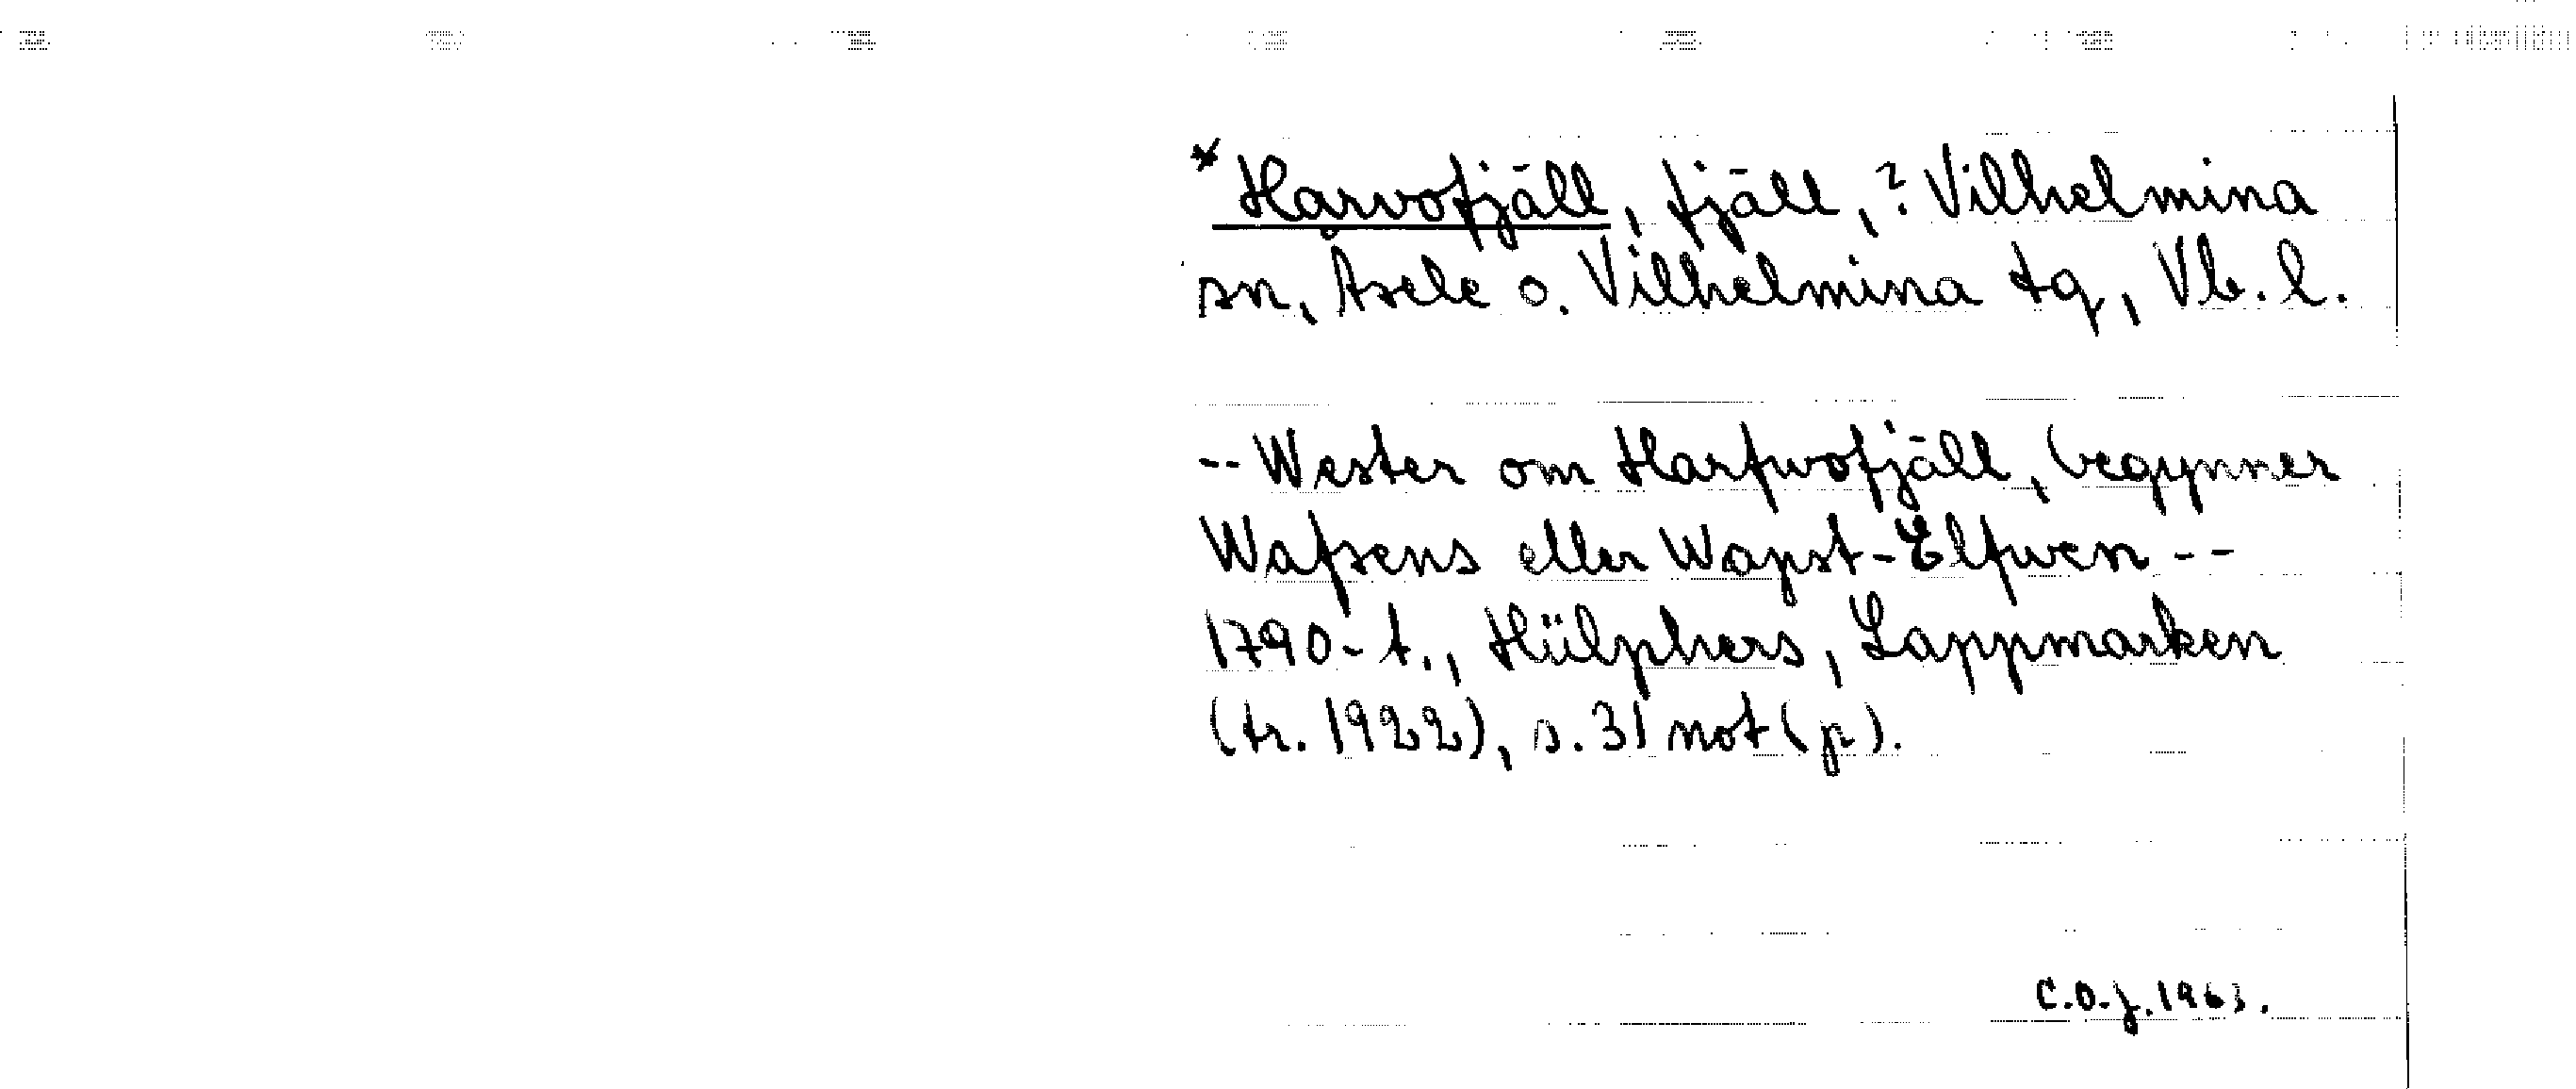 *Harvofjäll, fjäll, ? Vilhelmina
sn, Åsele o. Vilhelmina tg, Vb. l.
-- Wester om Harfwofjäll, begynner
Wafsens eller Wapst-Elfwen --
1790-t., Hülphers, Lappmarken
(tr. 1922), s. 31 not (p).
C.O-j. 1963.